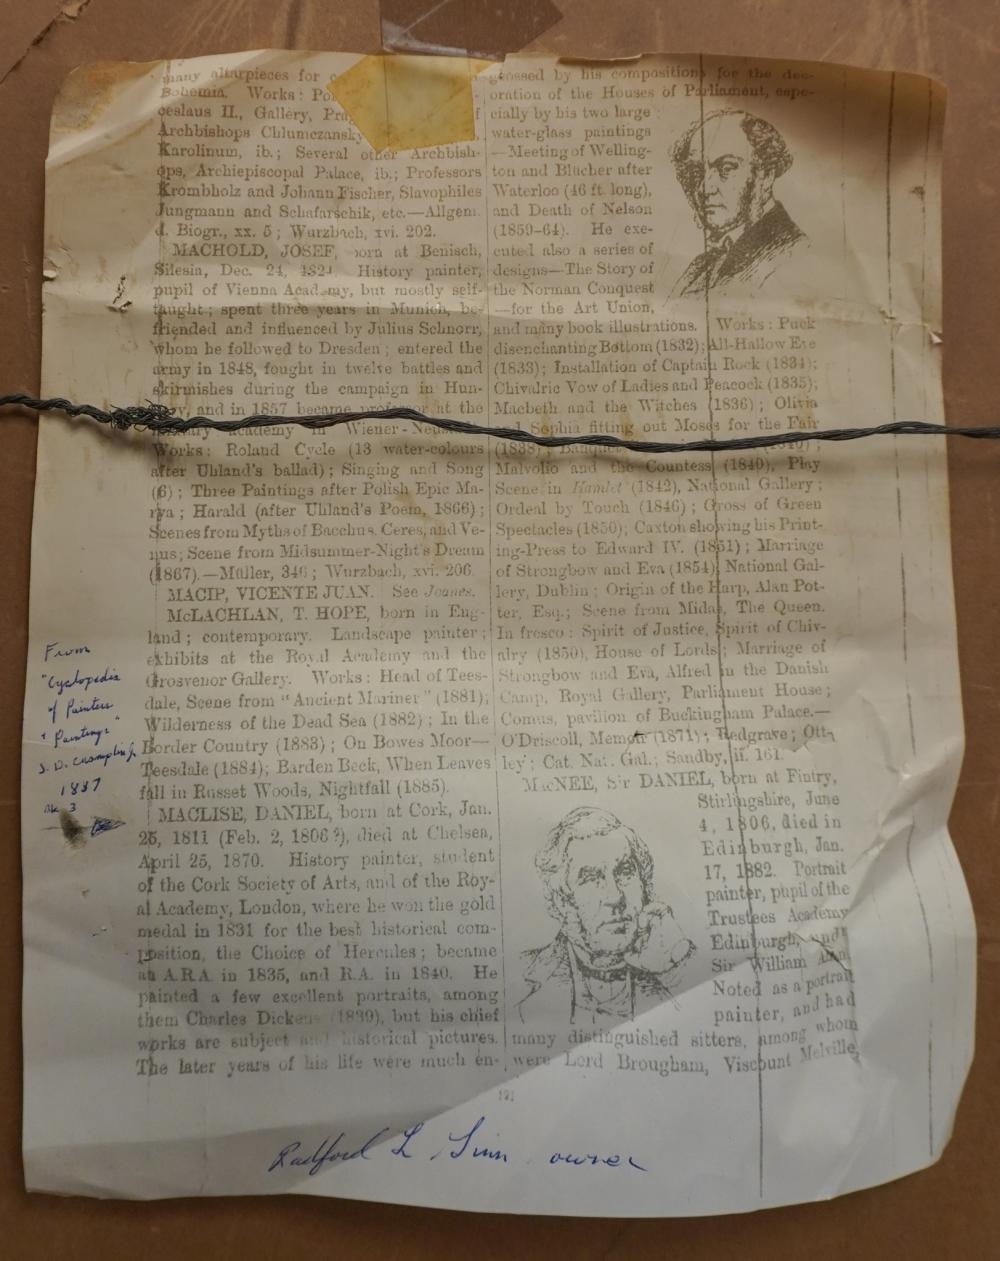 many altarpieces for
Bohemia. Works:
ceslaus II., Gallery,
Archbishops Chlumczansky
Karolinum, ib.; Several other Archbish-
ops, Archiepiscopal Palace, ib.; Professors
Krombholz and Johann Fischer, Slavophiles
Jungmann and Schafarschik, etc.—Allgem.
d. Biogr., xx. 5; Wurzbach, xvi. 202.
MACHOLD, JOSEF, born at Benisch,
Silesia, Dec. 24, History painter,
pupil of Vienna Academy, but mostly self-
taught; spent three years in Munich, be-
friended and influenced by Julius Schnorr,
whom he followed to Dresden; entered the
army in 1848, fought in twelve battles and
skirmishes during the campaign in Hun-
and in 1857 became professor at the
academy in Wiener-
Works: Roland Cycle (13 water-colours
after Uhland's ballad); Singing and Song
(6); Three Paintings after Polish Epic Ma-
rya; Harald (after Uhland's Poem, 1866);
Scenes from Myths of Bacchus, Ceres, and Ve-
nus; Scene from Midsummer-Night's Dream
(1867).—Müller, 346; Wurzbach, xvi. 206.
MACIP, VICENTE JUAN. See Joanes.
McLACHLAN, T. HOPE, born in Eng-
land; contemporary. Landscape painter;
exhibits at the Royal Academy and the
Grosvenor Gallery. Works: Head of Tees-
dale, Scene from "Ancient Mariner" (1881);
Wilderness of the Dead Sea (1882); In the
Border Country (1883); On Bowes Moor—
Teesdale (1884); Barden Beck, When Leaves
fall in Russet Woods, Nightfall (1885).
MACLISE, DANIEL, born at Cork, Jan.
25, 1811 (Feb. 2, 1806?), died at Chelsea,
April 25, 1870. History painter, student
of the Cork Society of Arts, and of the Roy-
al Academy, London, where he won the gold
medal in 1831 for the best historical com-
position, the Choice of Hercules; became
an A.R.A. in 1835, and R.A. in 1840. He
painted a few excellent portraits, among
them Charles Dickens (1839), but his chief
works are subject and historical pictures.
The later years of his life were much en-
grossed by his compositions for the dec-
oration of the Houses of Parliament, espe-
cially by his two large
water-glass paintings
—Meeting of Welling-
ton and Blücher after
Waterloo (46 ft. long),
and Death of Nelson
(1859-64). He exe-
cuted also a series of
designs—The Story of
the Norman Conquest
—for the Art Union,
and many book illustrations. Works: Puck
disenchanting Bottom (1832); All-Hallow Eve
(1833); Installation of Captain Rock (1834);
Chivalric Vow of Ladies and Peacock (1835);
Macbeth and the Witches (1836); Olivia
and Sophia fitting out Moses for the Fair
(1838); Banquet (1840);
Malvolio and the Countess (1840), Play
Scene in Hamlet (1842), National Gallery;
Ordeal by Touch (1846); Gross of Green
Spectacles (1850); Caxton showing his Print-
ing-Press to Edward IV. (1851); Marriage
of Strongbow and Eva (1854), National Gal-
lery, Dublin; Origin of the Harp, Alan Pot-
ter, Esq.; Scene from Midas, The Queen.
In fresco: Spirit of Justice, Spirit of Chiv-
alry (1850), House of Lords; Marriage of
Strongbow and Eva, Alfred in the Danish
Camp, Royal Gallery, Parliament House;
Comus, pavilion of Buckingham Palace.—
O'Driscoll, Memoir (1871); Redgrave; Ott-
ley; Cat. Nat. Gal.; Sandby, ii. 161.
MacNEE, Sir DANIEL, born at Fintry,
Stirlingshire, June
4, 1806, died in
Edinburgh, Jan.
17, 1882. Portrait
painter, pupil of the
Trustees Academy
Edinburgh, and
Sir William Allan
Noted as a portrait
painter, and had
many distinguished sitters, among whom
were Lord Brougham, Viscount Melville,
From
"Cyclopedia
of Painters
+ Paintings"
J. D. Champlin Jr.
1887
3
Radford L owner